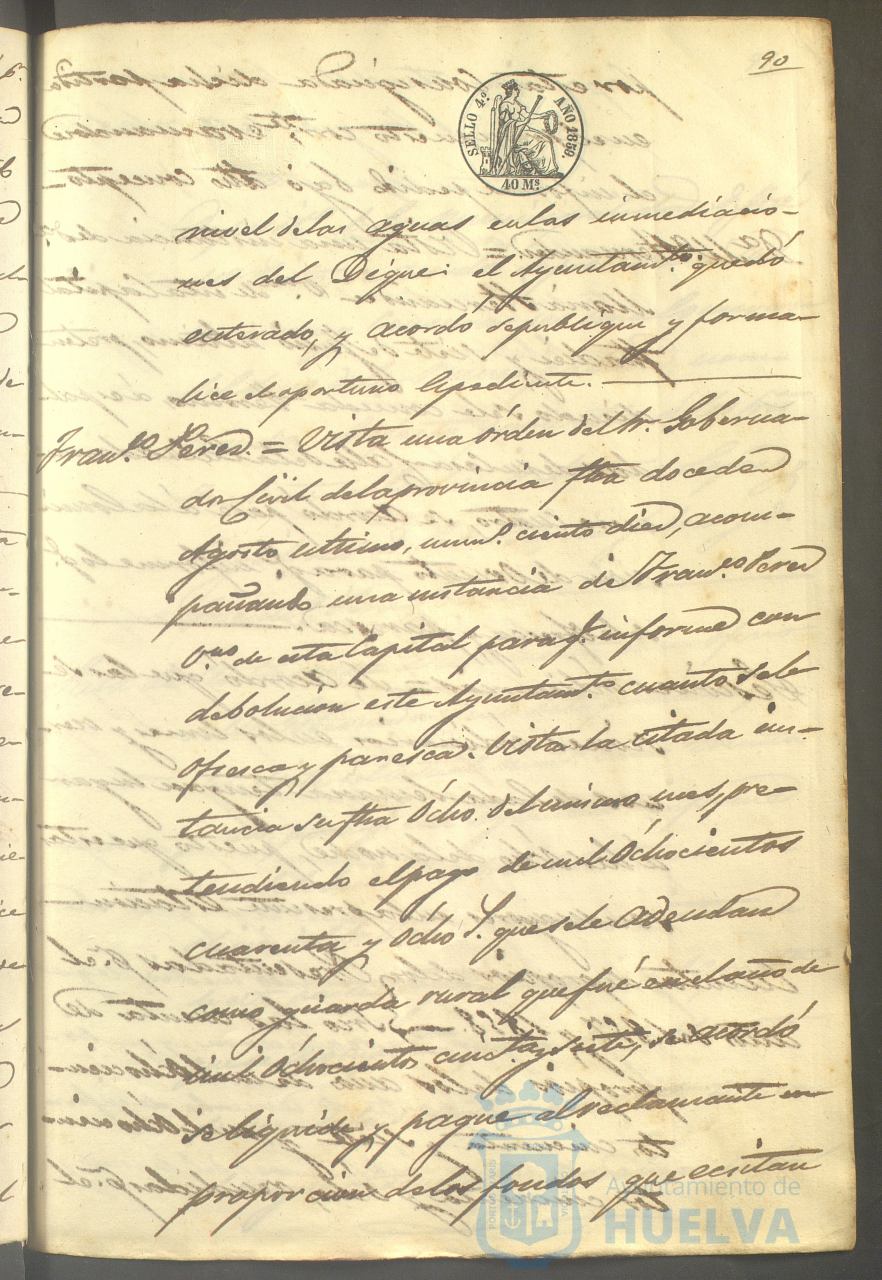 90
SELLO 4.º AÑO 1859.
40 M.s
nivel de las aguas en las inmediacio-
nes del Digue: el Ayuntam.to quedó
enterado, y acordo se publique y forma-
lice el oportuno Espediente.
Fran.co Peres. = Vista una órden del Sr. Goberna-
dor Civil de la provincia fha doce de
Agosto ultimo, num.o ciento dies, acom-
pañando una instancia de Fran.co Peres
V.no de esta Capital para q.e informe con
debolucion este Ayuntam.to cuanto se le
ofresca y paresca. Vista la citada ins-
tancia su fha Ocho del mismo mes, pre-
tendiendo el pago de mil Ochocientos
cuarenta y Ocho r.s que se le adeudan
como guarda rural que fué en el año de
mil Ochocientos cinc.ta y siete, se acordó
se liquide y pague al reclamante en
proporcion de los fondos que ecsitan
Ayuntamiento de
HUELVA